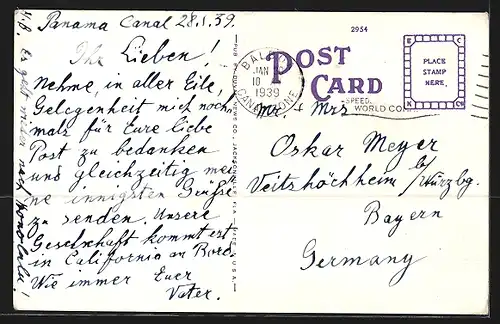 Panama Canal 28.1.39.
Ihr Lieben!
Nehme, in aller Eile,
Gelegenheit mich noch
mals für Eure liebe
Post zu bedanken
und gleichzeitig mei
ne innigsten Grüße
zu senden. Unsere
Gesellschaft kommt erst
in California an Bord.
Wie immer Euer
Vater.
N.B. Es geht wieder nach Honolulu!
2954
POST
CARD
PLACE
STAMP
HERE
BALBOA
JAN
10
1939
CANAL ZONE
SPEED.
WORLD
Mr. + Mrs
Oskar Meyer
Veitshöchheim b/Würzbg.
Bayern
Germany